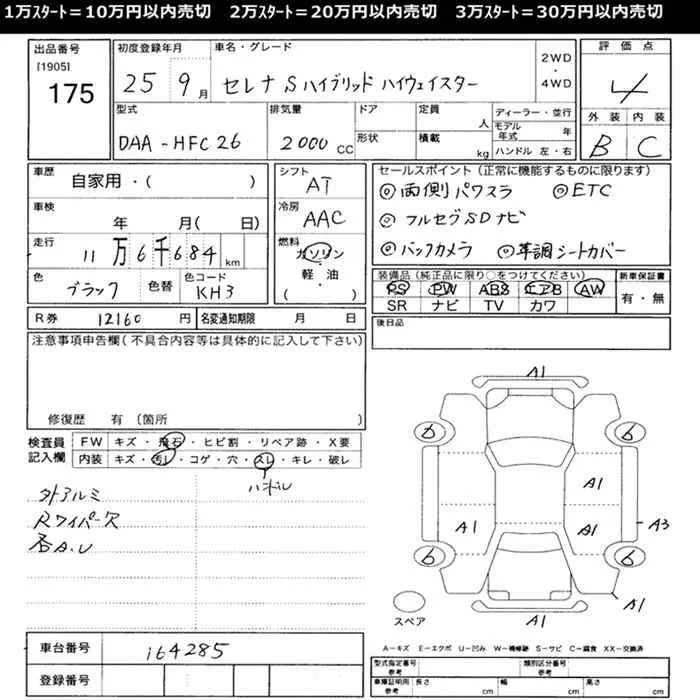 1万ｽﾀｰﾄ＝10万円以内売切　2万ｽﾀｰﾄ＝20万円以内売切　3万ｽﾀｰﾄ＝30万円以内売切
出品番号
[1905]
175
初度登録年月
25 9月
車名・グレード
セレナ S ハイブリッド ハイウェイスター
2WD
・
4WD
評価点
4
外装 内装
B C
型式
DAA-HFC26
排気量
2000 CC
ドア
形状
定員 人
積載 kg
ディーラー・並行
モデル年式 年
ハンドル 左・右
車歴
自家用・( )
車検
年 月( 日)
走行
11万6千684 km
色
ブラック
色替
色コード
KH3
シフト
AT
冷房
AAC
燃料
ガソリン
・
軽・油
( )
セールスポイント（正常に機能するものに限ります）
◎両側パワスラ ◎ETC
◎フルセグSDナビ
◎バックカメラ ◎革調シートカバー
装備品（純正品に限り○をつけてください）
PS PW ABS エアB AW
SR ナビ TV カワ
新車保証書
有・無
R券 12160 円
名変通知期限 月 日
後日品
注意事項申告欄（不具合内容等は具体的に記入して下さい）
修復歴 有〔箇所 〕
検査員
記入欄
FW キズ・飛石・ヒビ割・リペア跡・X要
内装 キズ・汚レ・コゲ・穴・スレ・キレ・破レ
ハンドル
外アルミ
Rワイパー欠
否A.U
A1
6 6
A1
A1 A1 A3
6 6
A1
A1
スペア
A－キズ E－エクボ U－凹み W－補修跡 S－サビ C－腐食 XX－交換済
車台番号
164285
登録番号
型式指定番号
参考
類別区分番号
参考
車庫証明用
参考
長さ cm
幅 cm
高さ cm